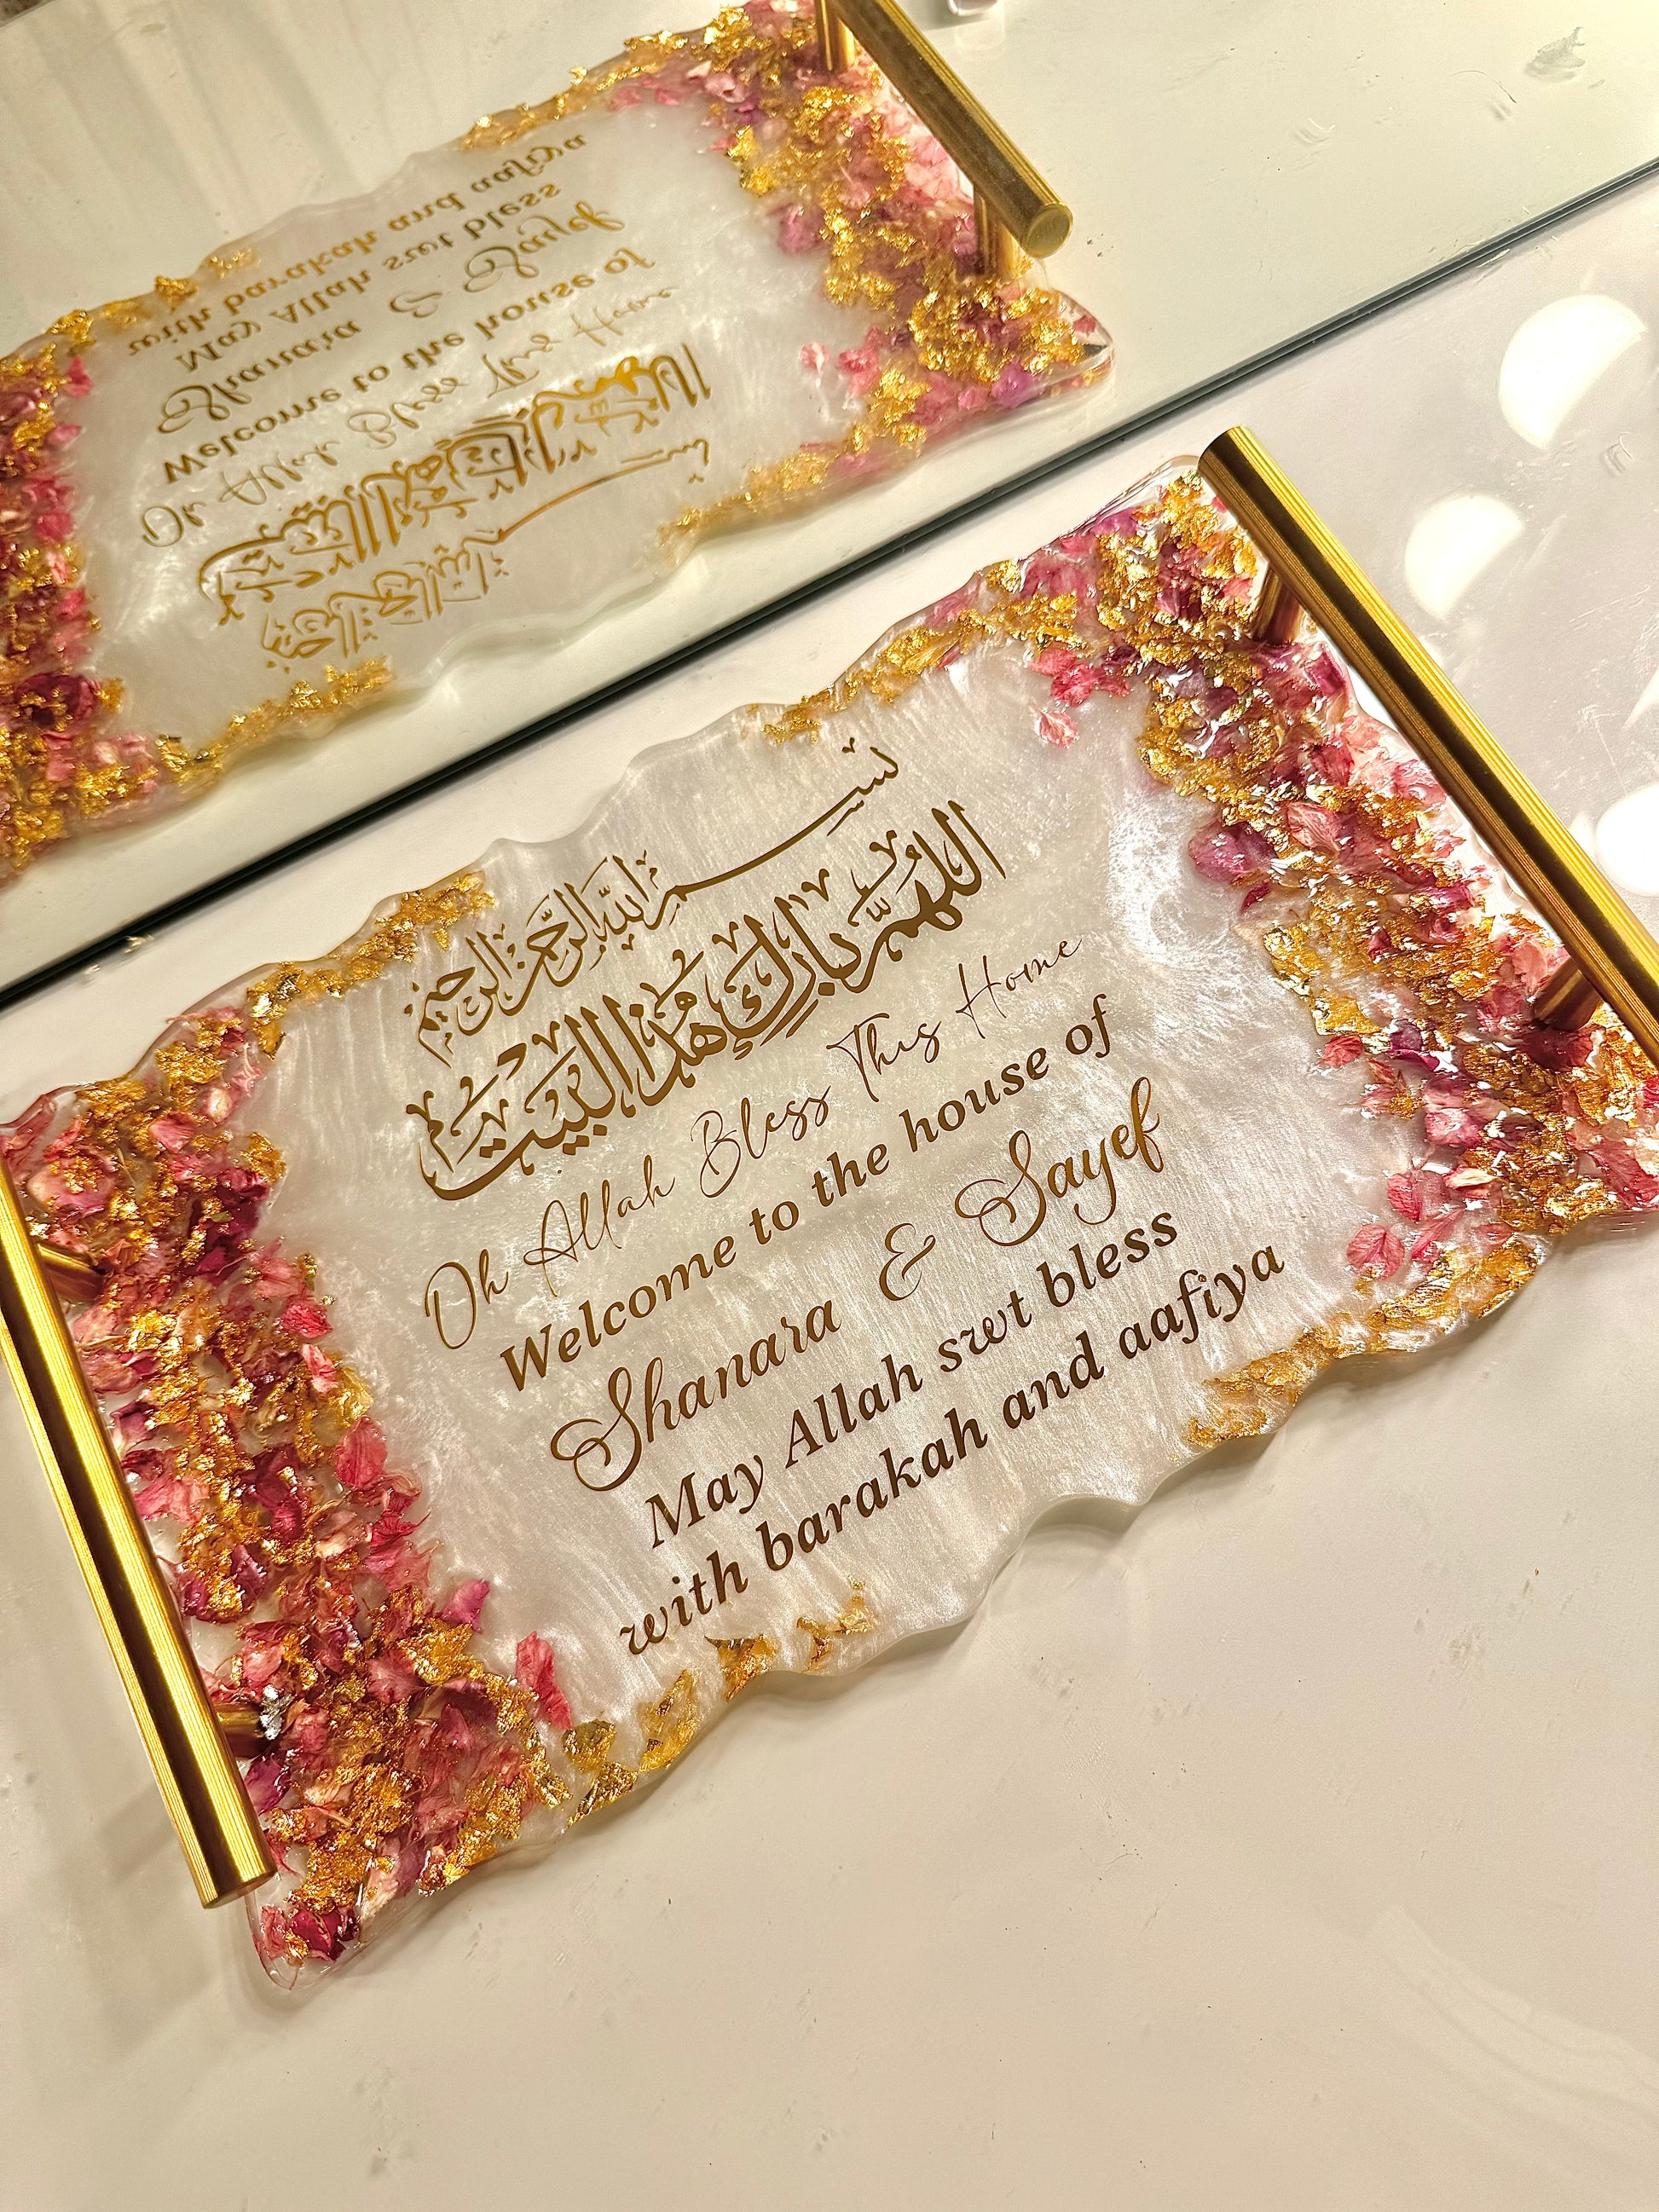 بسم الله الرحمن الرحيم
اللهم بارك هذا البيت
Oh Allah Bless This Home
Welcome to the house of
Shanara & Sayef
May Allah swt bless
with barakah and aafiya